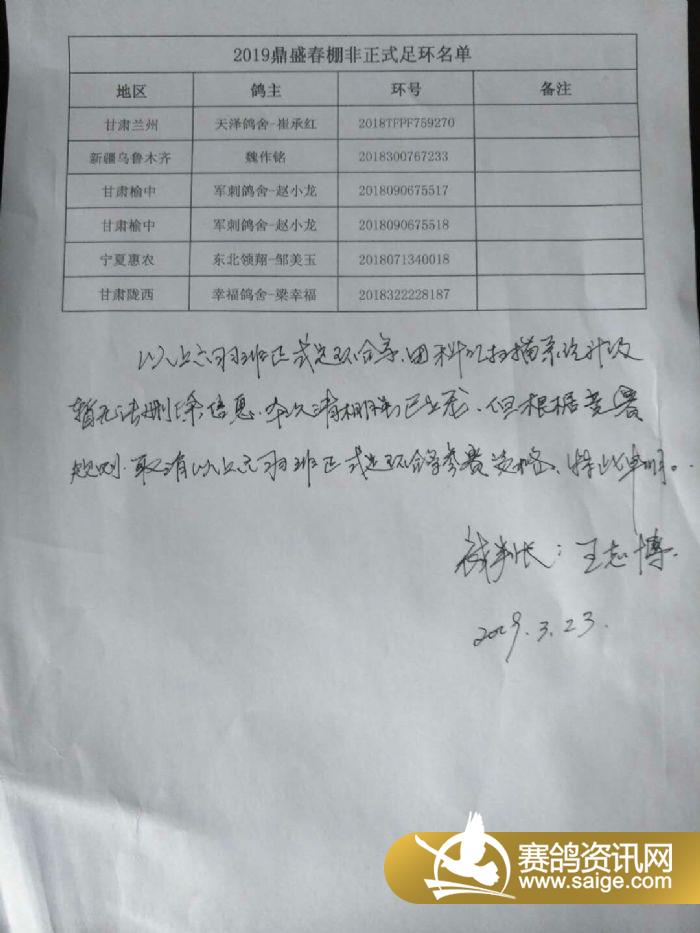 2019鼎盛春棚非正式足环名单
地区 鸽主 环号 备注
甘肃兰州 天泽鸽舍-崔承红 2018TFPF759270
新疆乌鲁木齐 魏作铭 2018300767233
甘肃榆中 军刺鸽舍-赵小龙 2018090675517
甘肃榆中 军刺鸽舍-赵小龙 2018090675518
宁夏惠农 东北领翔-邹美玉 2018071340018
甘肃陇西 幸福鸽舍-梁幸福 2018322228187
以上六羽非正式足环鸽子,因科汇扫描系统升级
暂无法删除信息.本次清棚已上笼,但根据竞赛
规则.取消以上六羽非正式足环鸽子参赛资格、特此申明。
裁判长:王志博
2019.3.23.
赛鸽资讯网
www.saige.com